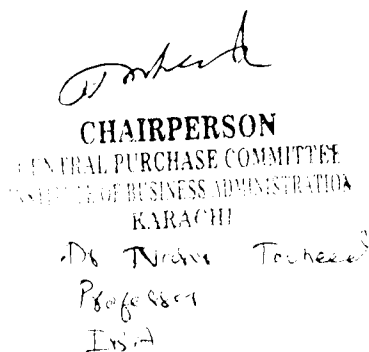 CHAIRPERSON
CENTRAL PURCHASE COMMITTEE
INSTITUTE OF BUSINESS ADMINISTRATION
KARACHI
Dr
Professor